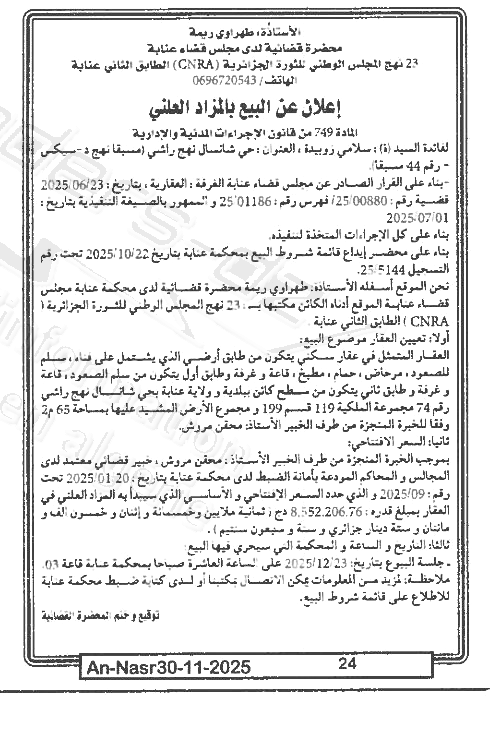 الأستاذة، طهراوي ريمة
محضرة قضائية لدى مجلس قضاء عنابة
23 نهج المجلس الوطني للثورة الجزائرية (CNRA) الطابق الثاني عنابة
الهاتف/ 0696720543
إعلان عن البيع بالمزاد العلني
المادة 749 من قانون الإجراءات المدنية والإدارية
لفائدة السيد (ة) : سلامي روبيدة ، العنوان : حي شانسال نهج راشي (مسبقا نهج د-سيكس
- رقم 44 مسبقا).
-بناء على القرار الصادر عن مجلس قضاء عنابة الغرفة : العقارية ، بتاريخ : 2025/06/23
قضية رقم :25/00880/ فهرس رقم : 25/01186 و الممهور بالصيغة التنفيذية بتاريخ :
2025/07/01
بناء على كل الإجراءات المتخذة لتنفيذه.
بناء على محضر إيداع قائمة شروط البيع بمحكمة عنابة بتاريخ 2025/10/22 تحت رقم
التسجيل 25/5144.
نحن الموقع أسفله الأستاذة: طهراوي ريمة محضرة قضائية لدى محكمة عنابة مجلس
قضاء عنابة الموقع أدناه الكائن مكتبها بـ : 23 نهج المجلس الوطني للثورة الجزائرية (
CNRA ) الطابق الثاني عنابة .
أولا: تعيين العقار موضوع البيع:
العقار المتمثل في عقار سكني يتكون من طابق أرضي الذي يشتمل على فناء ، سلم
للصعود ، مرحاض ، حمام ، مطبخ ، قاعة و غرفة وطابق أول يتكون من سلم الصعود ، قاعة
و غرفة و طابق ثاني يتكون من سطح كائن ببلدية و ولاية عنابة بحي شانسال نهج راشي
رقم 74 مجموعة الملكية 119 قسم 199 و مجموع الأرض المشيد عليها بمساحة 65 م2
وفقا للخبرة المنجزة من طرف الخبير الأستاذ: محقن مروش.
ثانيا: السعر الافتتاحي:
بموجب الخبرة المنجزة من طرف الخبير الأستاذ : محقن مروش ، خبير قضائي معتمد لدى
المجالس و المحاكم المودعة بأمانة الضبط لدى محكمة عنابة بتاريخ : 2025/01/20 تحت
رقم : 2025/09 و الذي حدد السعر الإفتتاحي و الأساسي الذي سيبدأ به المزاد العلني في
العقار بمبلغ قدره : 8.552.206.76 دج ( ثمانية ملايين وخمسمائة و إثنان و خمسون الف و
مائتان و ستة دينار جزائري و ستة و سبعون سنتيم ) .
ثالثا: التاريخ و الساعة و المحكمة التي سيجري فيها البيع:
ـ جلسة البيوع بتاريخ: 2025/12/23 على الساعة العاشرة صباحا بمحكمة عنابة قاعة 03.
ملاحظة: لمزيد من المعلومات يمكن الاتصال بمكتبنا أو لدى كتابة ضبط محكمة عنابة
للاطلاع على قائمة شروط البيع.
توقيع وختم المحضرة القضائية
An-Nasr30-11-2025 24